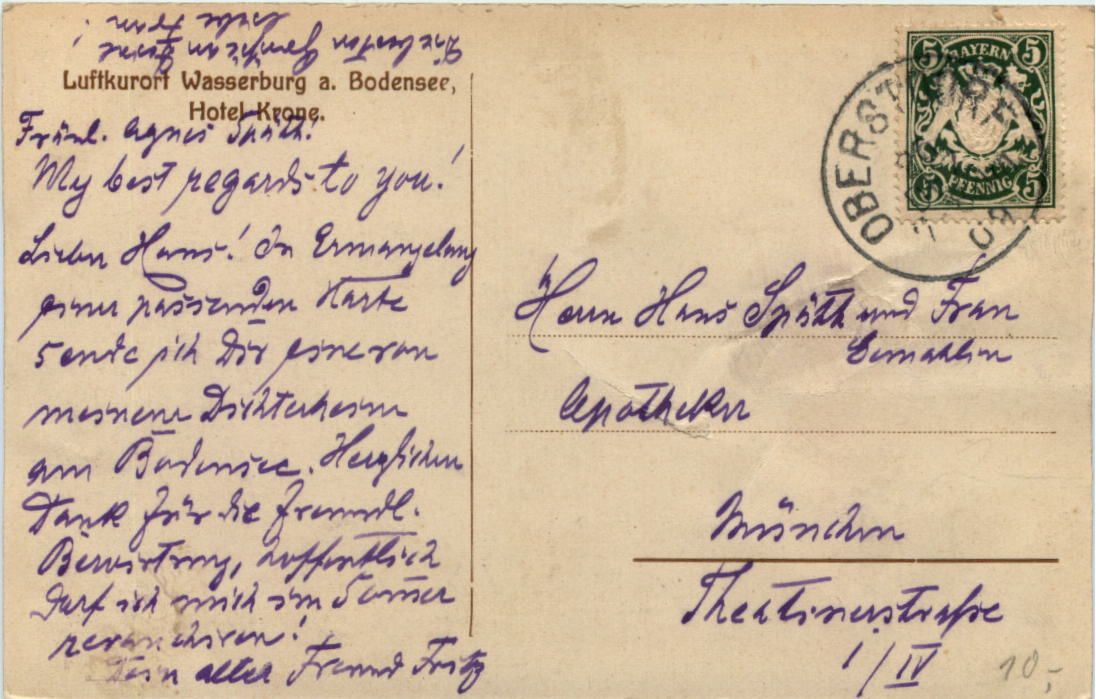 Luftkurort Wasserburg a. Bodensee,
Hotel Krone.
Fräul. Agnes Späth!
My best regards to you!
Lieber Hans! In Ermangelung
einer passenden Karte
sende ich Dir eine von
meinem Dichterheim
am Bodensee. Herzlichen
Dank für die freundl.
Bewirtung, hoffentlich
darf ich mich im Som̅er
revanchiren!
Dein alter Freund Fritz
BAYERN
5 5
5 PFENNIG 5
OBERSTDORF
09
Herrn Hans Späth und Frau
Gemahlin
Apotheker
München
Theatinerstraße
1/IV
10,-